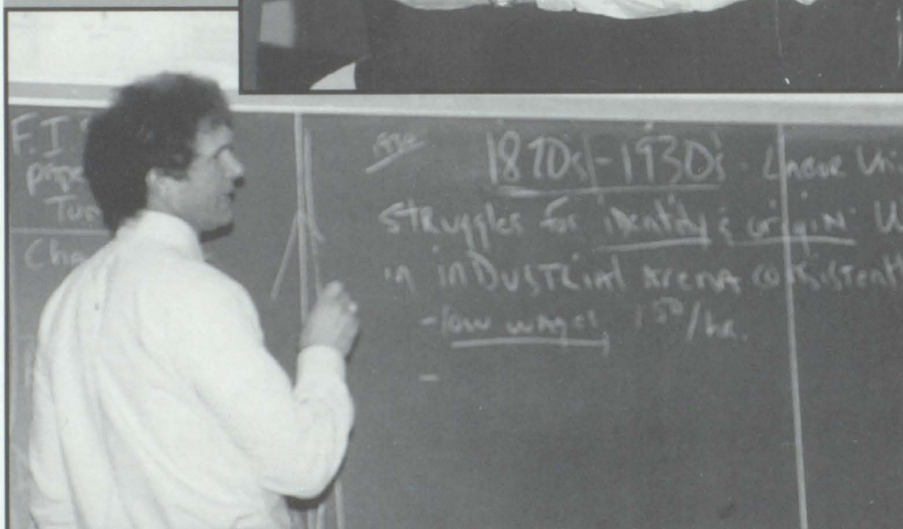 F.I.
Tues
Cha
1870s - 1930s - Labor Uni
struggles for identity & origin
in inDustrial arena consistent
- low wages 1 50/hr.
-